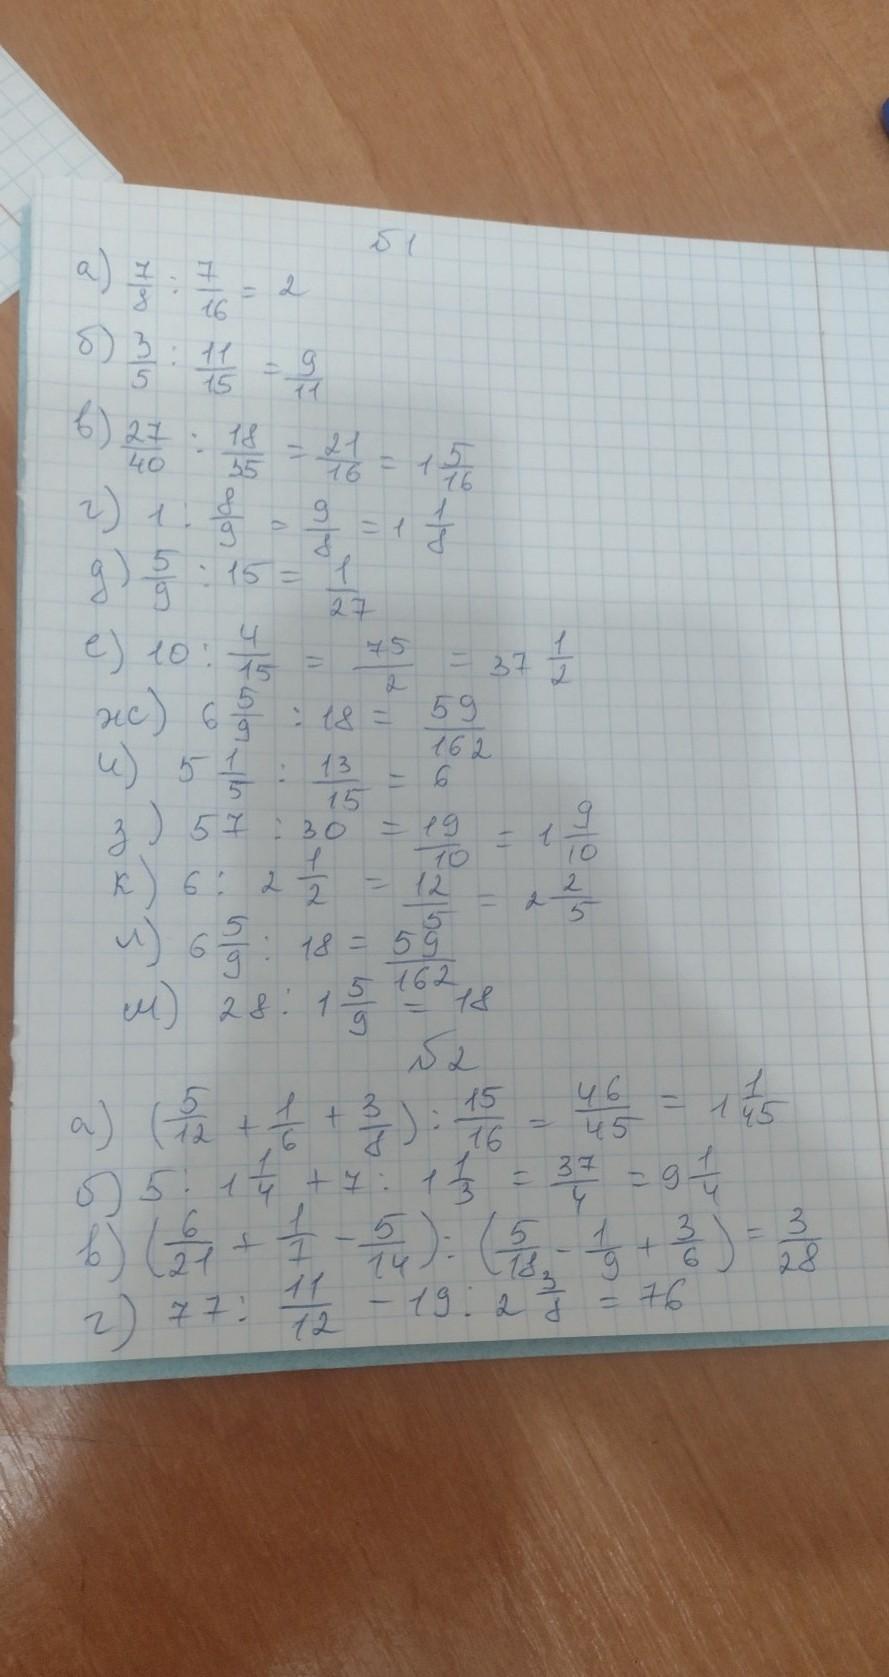 №1
а) 7/8 : 7/16 = 2
б) 3/5 : 11/15 = 9/11
в) 27/40 : 18/35 = 21/16 = 1 5/16
г) 1 : 8/9 = 9/8 = 1 1/8
д) 5/9 : 15 = 1/27
е) 10 : 4/15 = 75/2 = 37 1/2
ж) 6 5/9 : 18 = 59/162
и) 5 1/5 : 13/15 = 6
з) 57 : 30 = 19/10 = 1 9/10
к) 6 : 2 1/2 = 12/5 = 2 2/5
л) 6 5/9 : 18 = 59/162
м) 28 : 1 5/9 = 18
№2
а) (5/12 + 1/6 + 3/8) : 15/16 = 46/45 = 1 1/45
б) 5 : 1 1/4 + 7 : 1 1/3 = 37/4 = 9 1/4
в) (6/21 + 1/7 - 5/14) : (5/18 - 1/9 + 3/6) = 3/28
г) 77 : 11/12 - 19 : 2 3/8 = 76